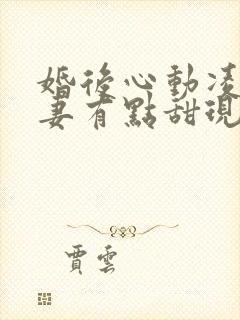 婚後心動凌
妻有點甜現
賈雲